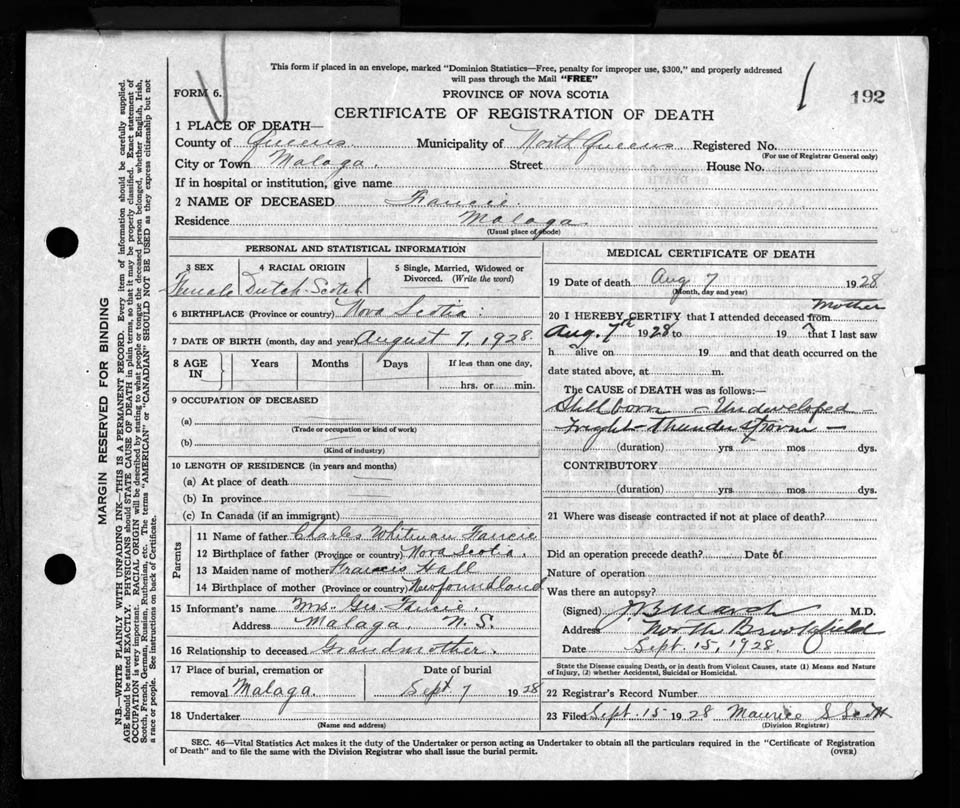 This form if placed in an envelope, marked "Dominion Statistics—Free, penalty for improper use, $300," and properly addressed
will pass through the Mail "FREE"
FORM 6.
PROVINCE OF NOVA SCOTIA
192
CERTIFICATE OF REGISTRATION OF DEATH
1 PLACE OF DEATH—
County of Queens Municipality of North Queens Registered No.
(For use of Registrar General only)
City or Town Malaga. Street House No.
If in hospital or institution, give name
2 NAME OF DECEASED
Residence Malaga
(Usual place of abode)
PERSONAL AND STATISTICAL INFORMATION
3 SEX 4 RACIAL ORIGIN 5 Single, Married, Widowed or
Divorced. (Write the word)
Female Dutch-Scotch
6 BIRTHPLACE (Province or country) Nova Scotia
7 DATE OF BIRTH (month, day and year) August 7, 1928
8 AGE IN Years Months Days If less than one day,
hrs. or min.
9 OCCUPATION OF DECEASED
(a)
(Trade or occupation or kind of work)
(b)
(Kind of industry)
10 LENGTH OF RESIDENCE (in years and months)
(a) At place of death
(b) In province
(c) In Canada (if an immigrant)
Parents
11 Name of father Charles Whitman
12 Birthplace of father (Province or country) Nova Scotia.
13 Maiden name of mother Francis Hall
14 Birthplace of mother (Province or country) Newfoundland
15 Informant's name Mrs. Geo.
Address Malaga, N.S.
16 Relationship to deceased Grandmother.
17 Place of burial, cremation or Date of burial
removal Malaga. Sept 7 1928
18 Undertaker
(Name and address)
MEDICAL CERTIFICATE OF DEATH
19 Date of death Aug 7 1928
(Month, day and year)
Mother
20 I HEREBY CERTIFY that I attended deceased from
Aug. 7th 1928 to 19 that I last saw
h alive on 19 and that death occurred on the
date stated above, at m.
The CAUSE of DEATH was as follows:—
Stillborn - Undeveloped -
fright - thunder storm -
(duration) yrs mos dys.
CONTRIBUTORY
(duration) yrs mos dys.
21 Where was disease contracted if not at place of death?
Did an operation precede death? Date of
Nature of operation
Was there an autopsy?
(Signed) M.D.
Address North Brookfield
Date Sept. 15, 1928.
State the Disease causing Death, or in death from Violent Causes, state (1) Means and Nature
of Injury, (2) whether Accidental, Suicidal or Homicidal.
22 Registrar's Record Number
23 Filed Sept. 15 1928 Maurice S Scott
(Division Registrar)
SEC. 46—Vital Statistics Act makes it the duty of the Undertaker or person acting as Undertaker to obtain all the particulars required in the "Certificate of Registration
of Death" and to file the same with the Division Registrar who shall issue the burial permit.
(OVER)
MARGIN RESERVED FOR BINDING
N.B.—WRITE PLAINLY WITH UNFADING INK—THIS IS A PERMANENT RECORD. Every item of information should be carefully supplied.
AGE should be stated EXACTLY. PHYSICIANS should STATE CAUSE OF DEATH in plain terms, so that it may be properly classified. Exact statement of
OCCUPATION is very important. RACIAL ORIGIN will be described by stating to what people or tongue the deceased person belonged, whether English, Irish,
Scotch, French, German, Russian, Ruthenian, etc. The terms "AMERICAN" or "CANADIAN" SHOULD NOT BE USED as they express citizenship but not
a race or people. See instructions on back of Certificate.